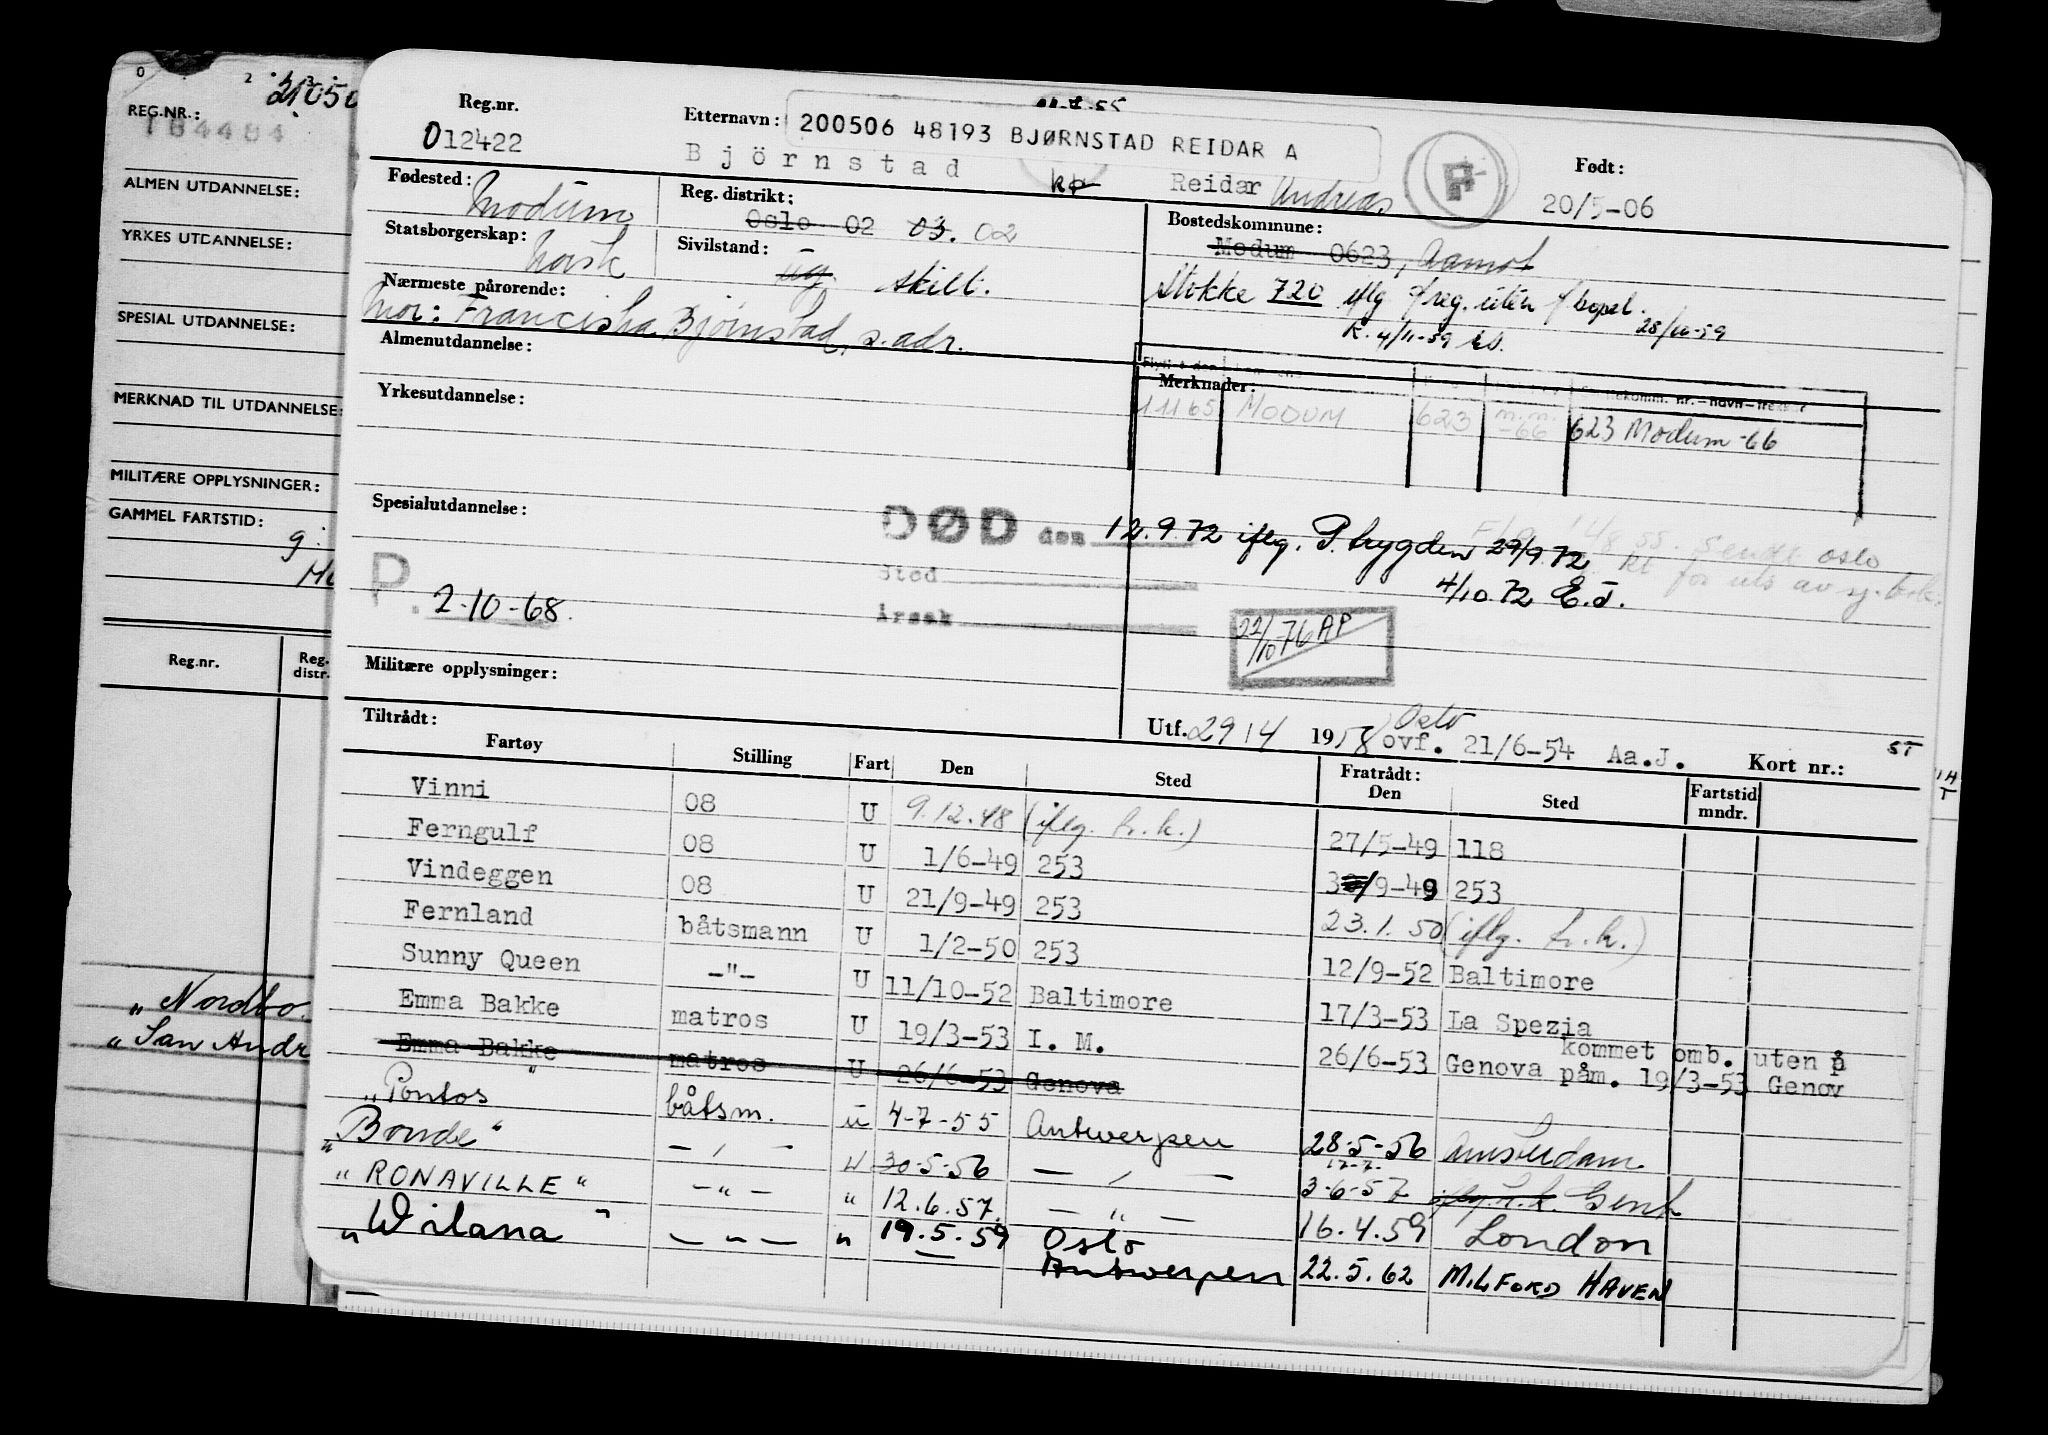 REG.NR.:
184484
ALMEN UTDANNELSE:
YRKES UTDANNELSE:
SPESIAL UTDANNELSE:
MERKNAD TIL UTDANNELSE:
MILITÆRE OPPLYSNINGER:
GAMMEL FARTSTID:
Reg.nr. Reg. distr.
"Nordbo.
"San Andr
Reg.nr.
012422
Etternavn:
200506 48193 BJØRNSTAD REIDAR A
Björnstad Reidar Andreas
Født:
20/5-06
Fødested: Modum
Reg. distrikt:
Oslo 02 03. 02
Bostedskommune:
Modum 0623, Aamot
Statsborgerskap: Norsk
Sivilstand: ug. skilt.
Stokke 720 iflg
28/10-59
K. 4/11-59
Nærmeste pårørende:
Mor: Franciska Bjørnstad, s. adr.
Almenutdannelse:
Merknader:
11165 MODUM 623 -66 623 Modum -66
Yrkesutdannelse:
Spesialutdannelse:
DØD den 12.9.72 iflg. P. trygden 29/9.72
4/10.72 E.J.
Sted
Årsak
P. 2-10-68.
22/10 76 AP
Militære opplysninger:
Utf. 2914 1958 Oslo ovf. 21/6-54 Aa.J. Kort nr.: ST
Tiltrådt:
Fartøy Stilling Fart Den Sted Fratrådt: Den Sted Fartstid mndr.
Vinni 08 U 9.12.48 (iflg. h.k.) 27/5-49 118
Ferngulf 08 U 1/6-49 253 /9-49 253
Vindeggen 08 U 21/9-49 253 23.1.50 (iflg. h.k.)
Fernland båtsmann U 1/2-50 253 12/9-52 Baltimore
Sunny Queen -"- U 11/10-52 Baltimore 17/3-53 La Spezia
Emma Bakke matros U 19/3-53 I. M. 26/6-53 Genova kommet omb. uten påm. 19/3-53 Genov
Emma Bakke matros U 26/6-53 Genova
"Pontos" båtsm. u 4-7-55 Antwerpen 28-5-56 Amsterdam
"Bonde" - , - u 30-5-56 - , - 3-6-57 iflg. h.k. Genk
"RONAVILLE" -"- " 12.6.57. - " - 16.4.59 London
"Wilana" - " - " 19.5.59 Oslo Antwerpen 22.5.62 MILFORD HAVEN